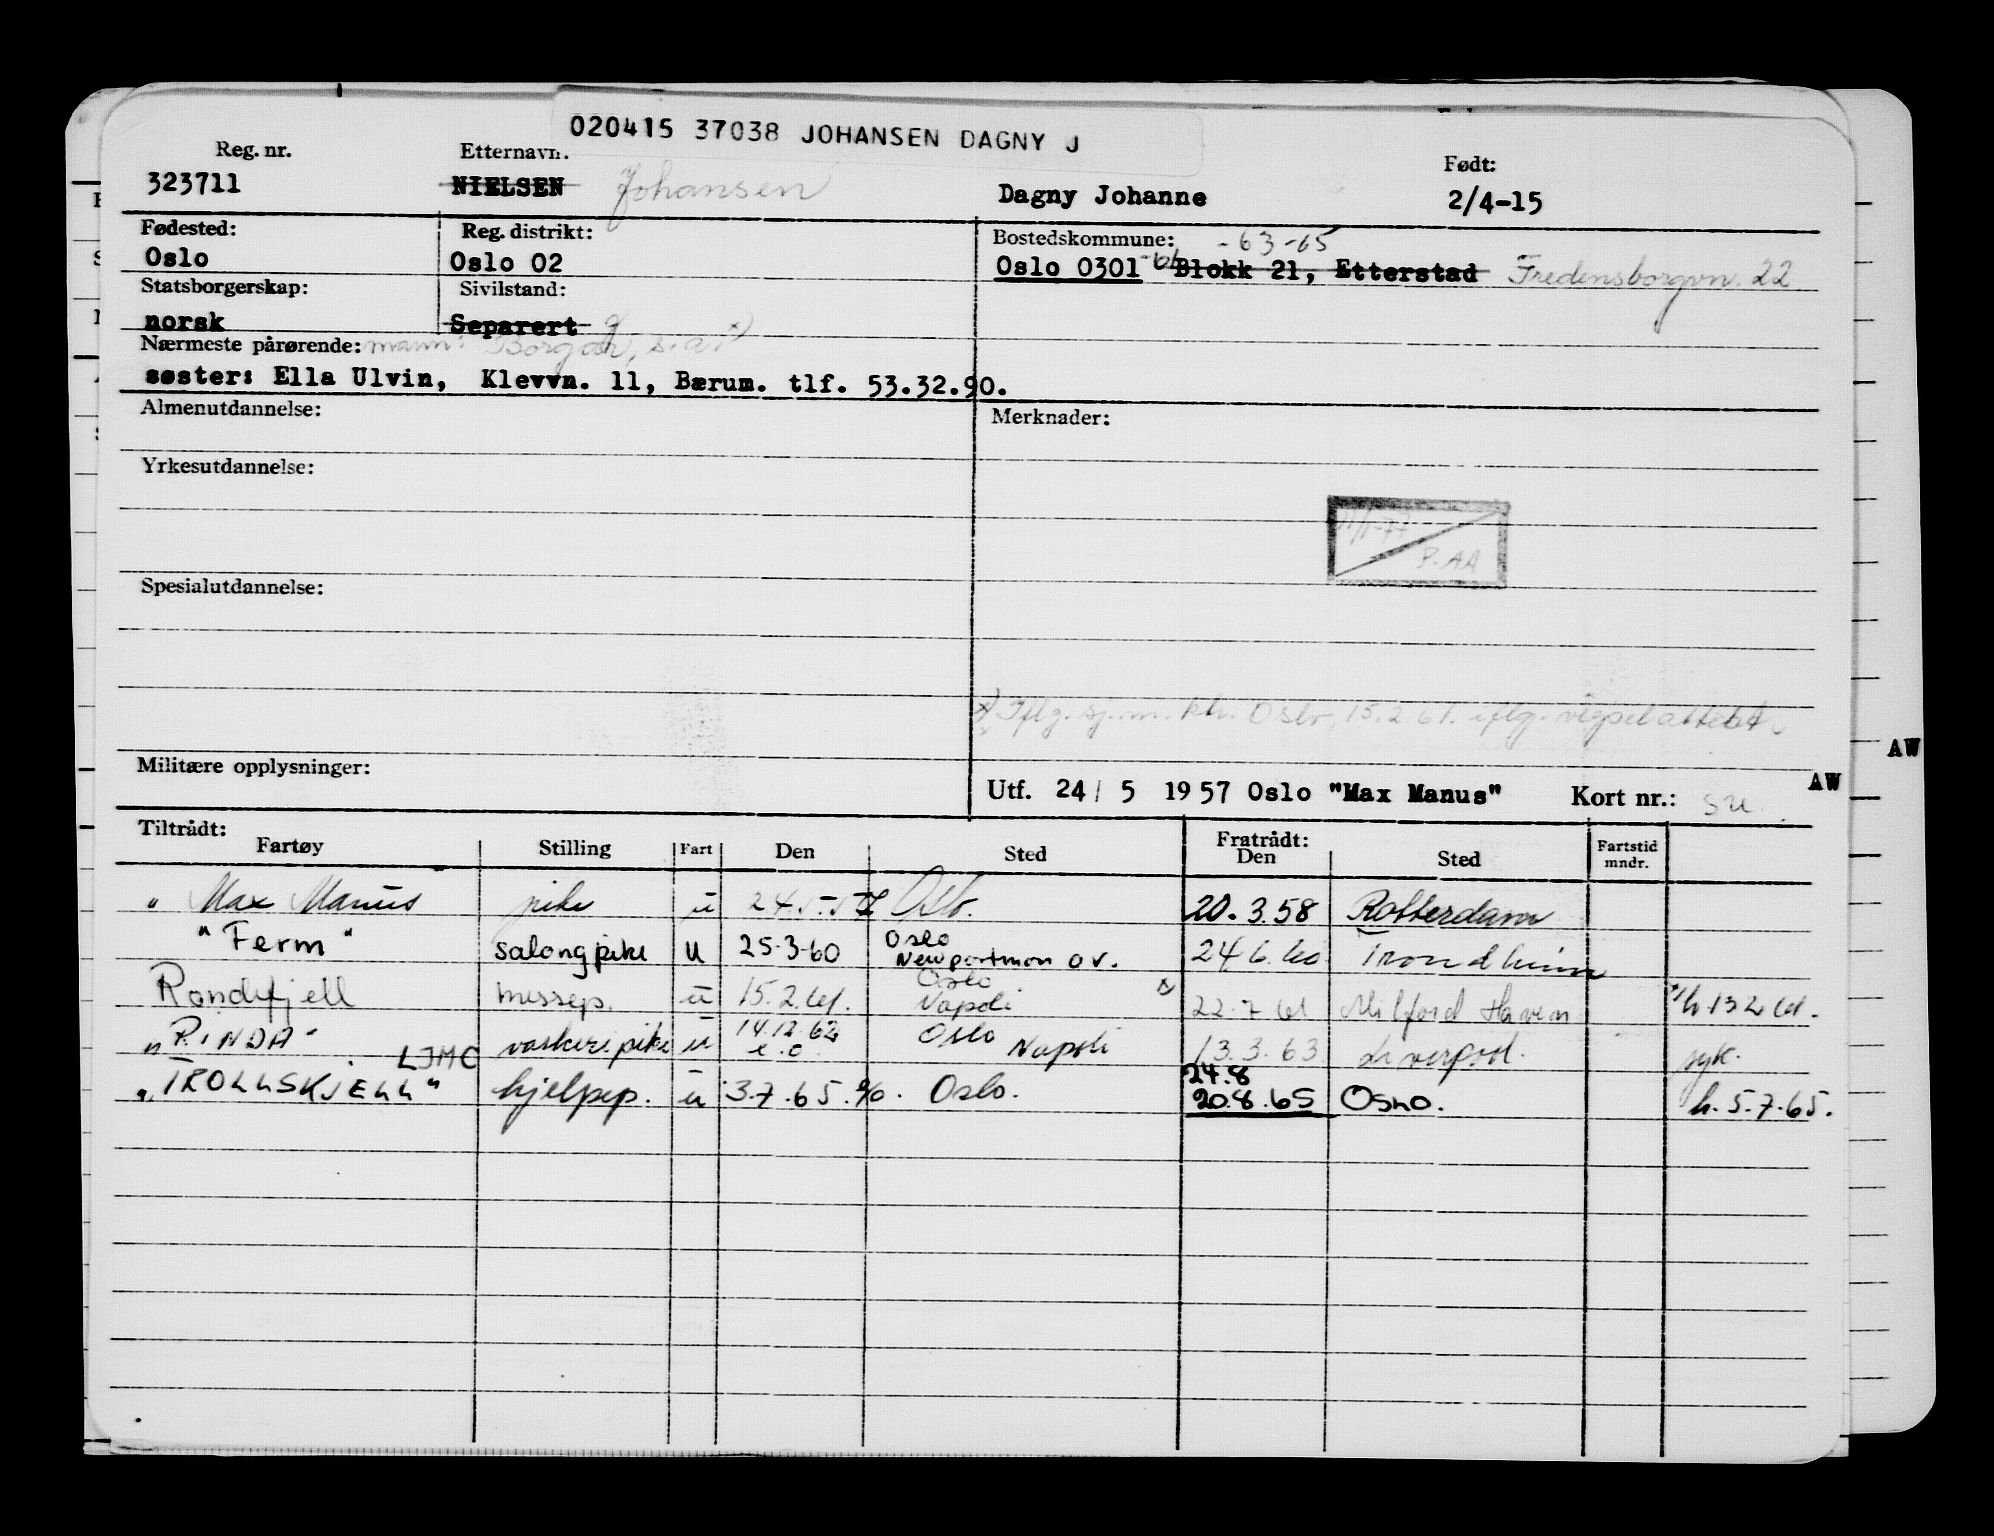 020415 37038 JOHANSEN DAGNY J
Reg. nr. Etternavn. Født:
323711 NIELSEN Johansen Dagny Johanne 2/4-15
Fødested: Reg. distrikt: Bostedskommune: -63-65
Oslo Oslo 02 Oslo 0301 Blokk 21, Etterstad Fredensborgvn. 22
Statsborgerskap: Sivilstand:
norsk Separert g x)
Nærmeste pårørende: mann: Borgar, s.a.
søster: Ella Ulvin, Klevvn. 11, Bærum. tlf. 53.32.90.
Almenutdannelse: Merknader:
Yrkesutdannelse:
P. AA
Spesialutdannelse:
x) Iflg. sj.m.kh. Oslo, 15.2.61. iflg. vigselattest.
AW
Militære opplysninger: Utf. 24/5 1957 Oslo "Max Manus" Kort nr.: AW
Tiltrådt: Fratrådt:
Fartøy Stilling Fart Den Sted Den Sted Fartstid mndr.
" Max Manus pike u 24.5.57 Oslo. 20.3.58 Rotterdam
"Ferm" salongpike u 25-3-60 Oslo Newportmon ov. 24.6.60 Trondheim
Rondefjell messep. u 15.2.61. Oslo Napoli x) 22.7.61 Milford Haven x) h 13 2 61.
"RINDA" LJMC vaskeripike u 14.12.62 e.o. Oslo Napoli 13.3.63 Liverpool. syk.
"TROLLSKJELL" hjelpep. u 3.7.65. Oslo. 24.8 20.8.65 Oslo. h. 5.7.65.